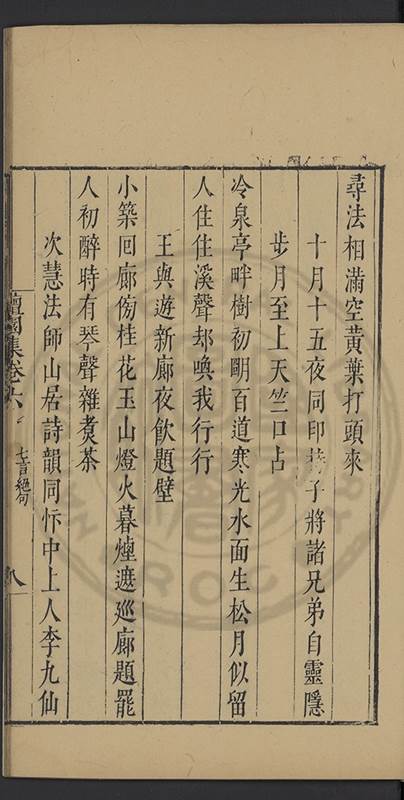 尋法相滿空黃葉打頭來
十月十五夜同印子將諸兄弟自靈隱
步月至上天竺口占
冷泉亭畔樹初明百道寒光水面生松月似留
人住住溪聲却喚我行行
王與遊新廊夜飲題壁
小築回廊傍桂花玉山燈火暮煙遮巡廊題罷
人初醉時有琴聲雜煑茶
次慧法師山居詩韻同忭中上人李九仙
集卷六
七言絕句
八